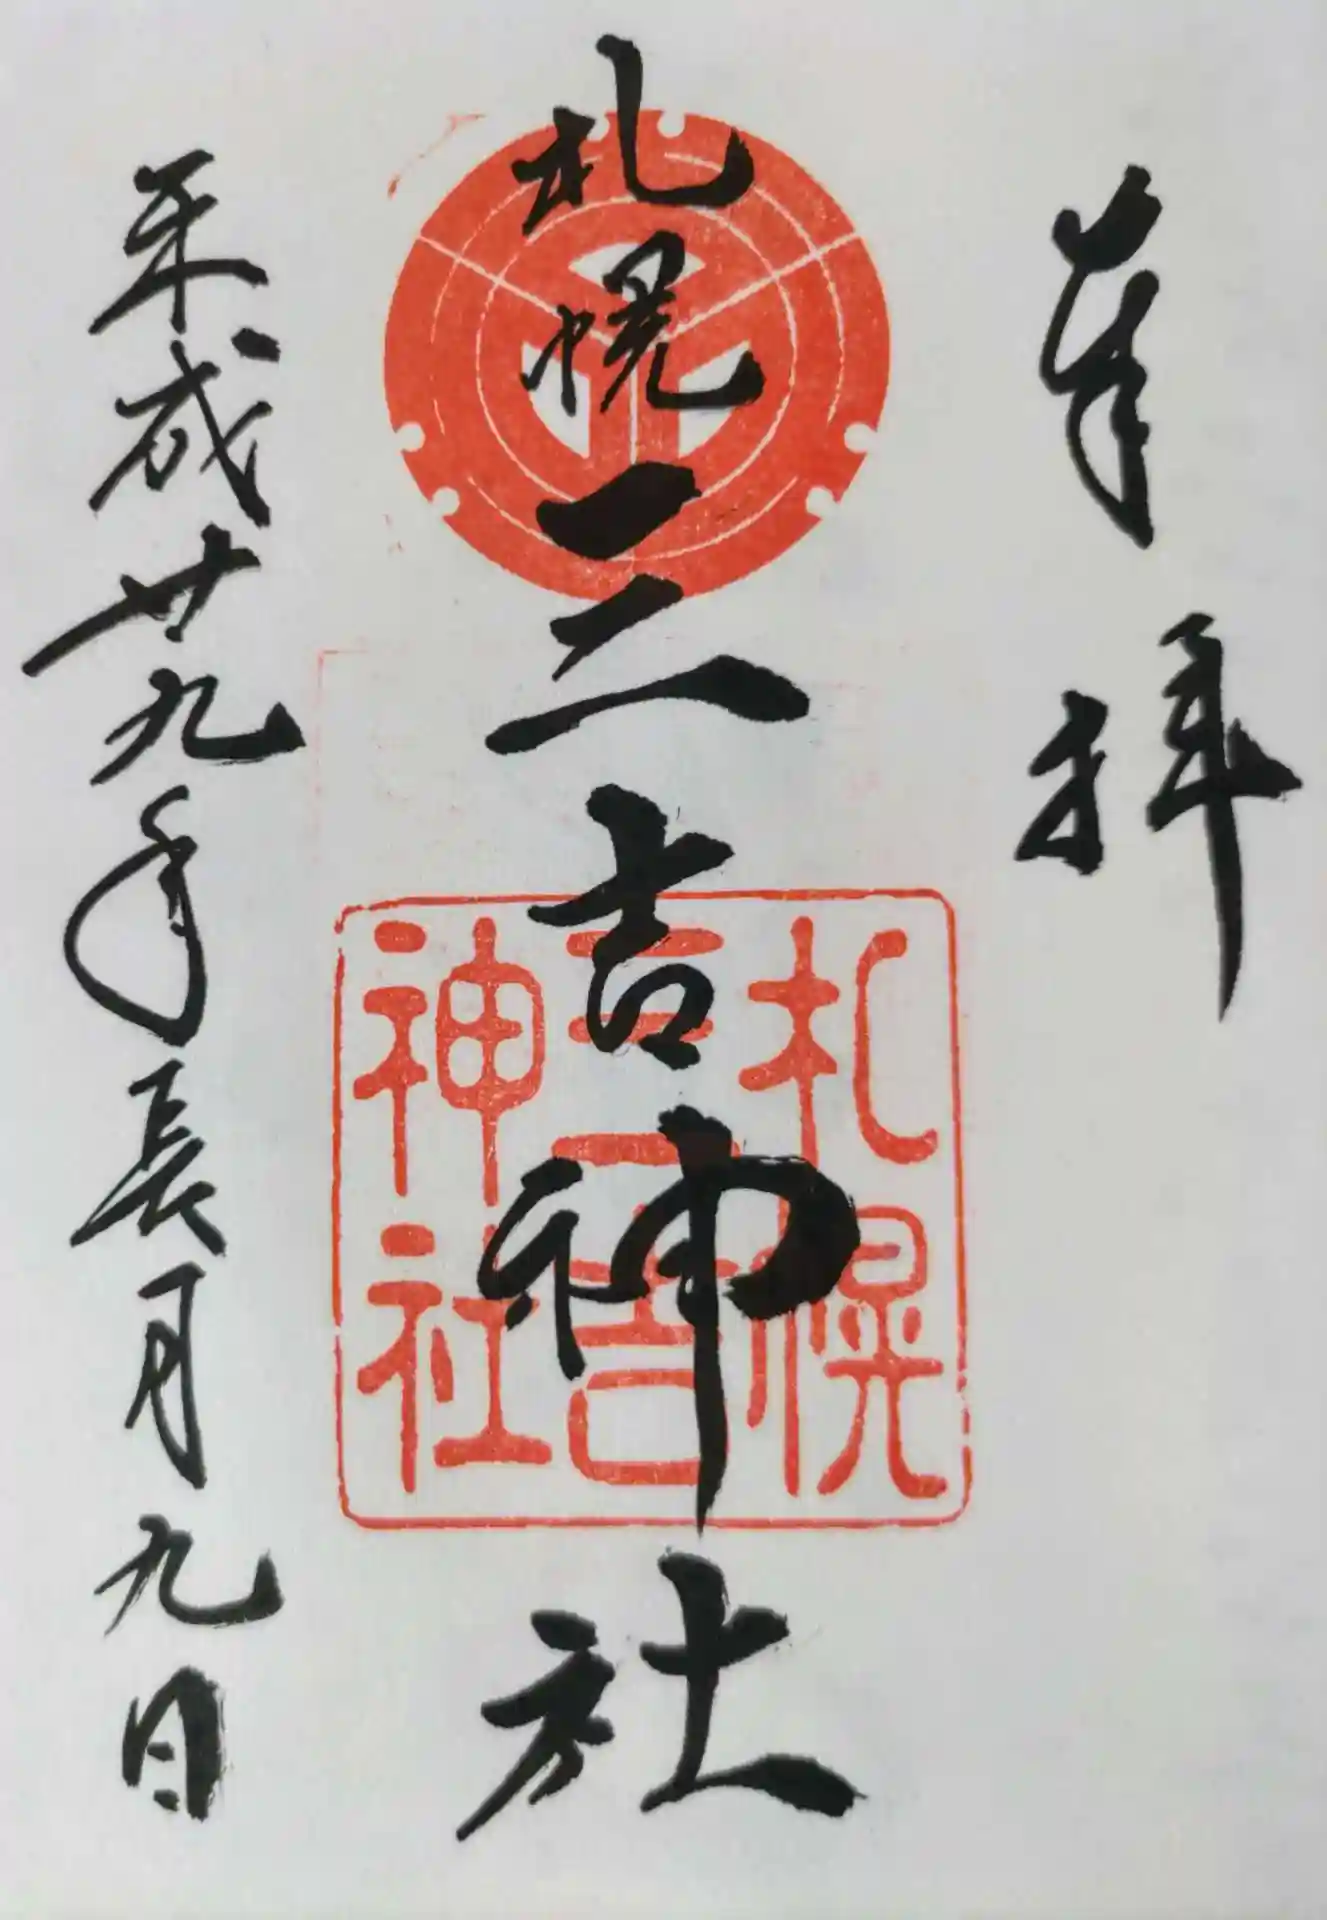 奉拝
札幌三吉神社
札幌
三吉
神社
平成廿九年長月九日